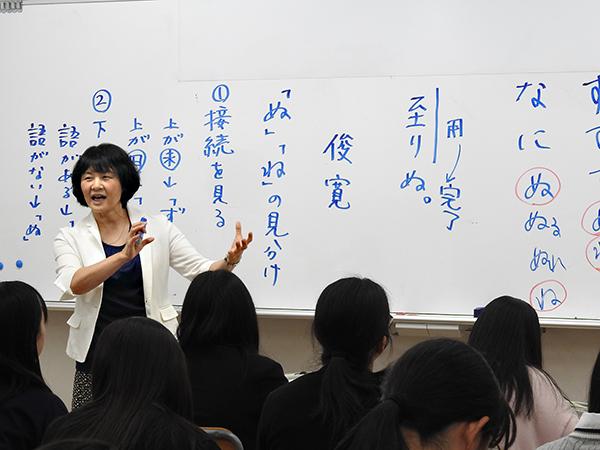 なに ぬ ぬる ぬれ ね
用→完了
至りぬ。
俊寛
「ぬ」「ね」の見分け
①接続を見る
上が未→「ず
上が用
② 下
語がある→
語がない→「ぬ